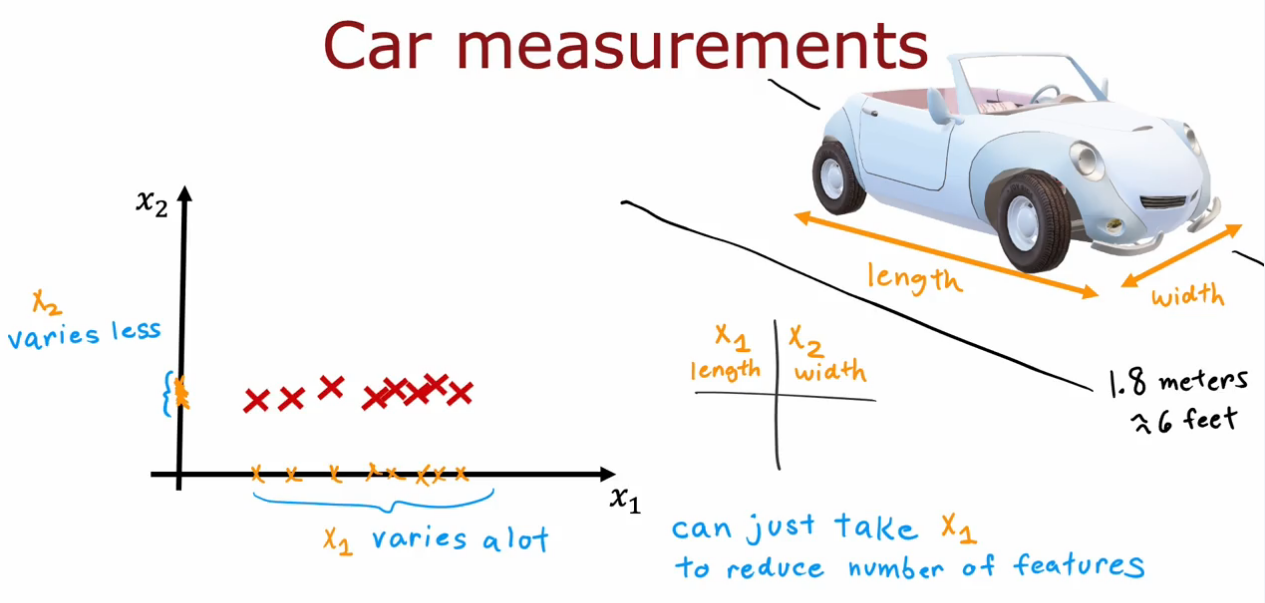 Car measurements
x₂
x₂
varies less
x₁
x₁ varies alot
length
width
x₁
length
x₂
width
1.8 meters
≈6 feet
can just take x₁
to reduce number of features